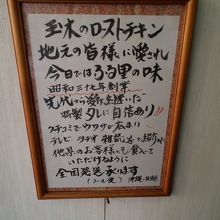 玉木のローストチキン
地元の皆様に愛され
今日ではふる里の味
昭和三十七年創業
先代から受け継いだ
特製タレに自信あり!!
クチコミでウワサが広まり
テレビ ラジオ 雑誌等で紹介
他県のお客様にも食べて
いただけるように
全国発送承ります
(クール便)